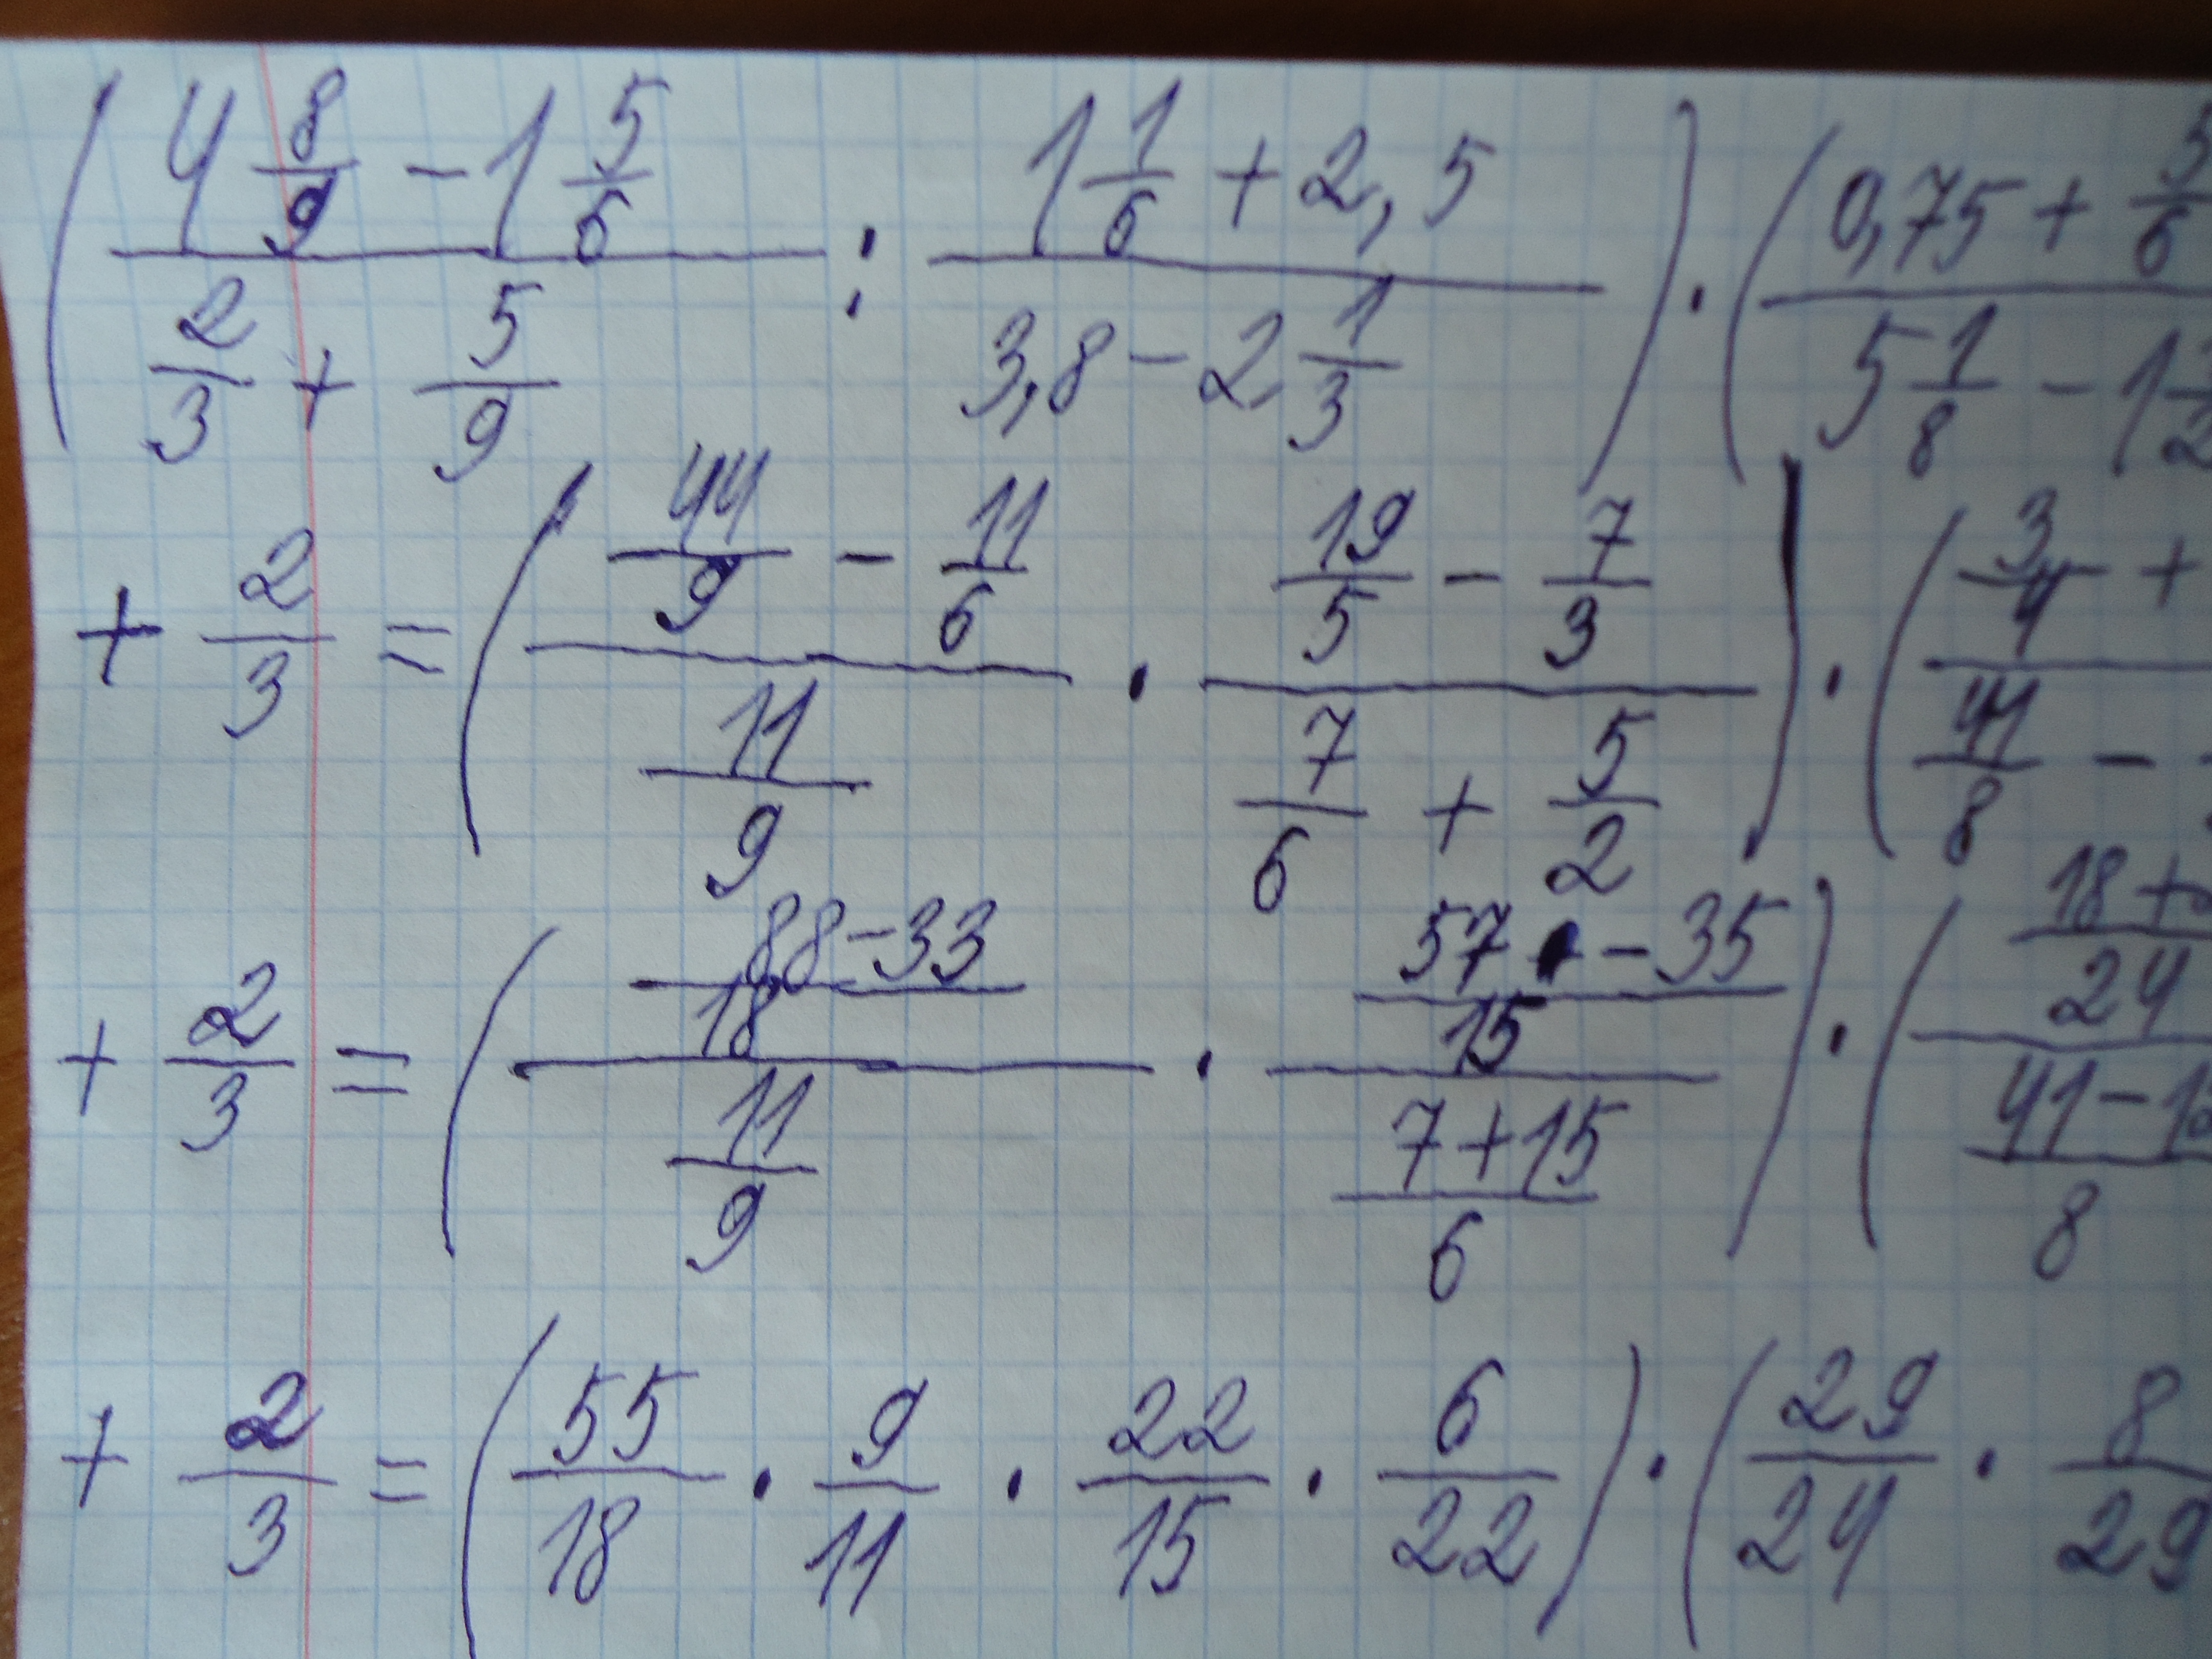 ( (4 8/9 - 1 5/6) / (2/3 + 5/9) : (1 1/6 + 2,5) / (3,8 - 2 1/3) ) · ( (0,75 + 5/6) / (5 1/8 - 1 1/2
+ 2/3 = ( (44/9 - 11/6) / (11/9) · (19/5 - 7/3) / (7/6 + 5/2) ) · ( (3/4 + / (41/8 -
+ 2/3 = ( ((88-33)/18) / (11/9) · ((57 - 35)/15) / ((7+15)/6) ) · ( ((18+)/24) / ((41-12)/8)
+ 2/3 = ( 55/18 · 9/11 · 22/15 · 6/22 ) · ( 29/24 · 8/29